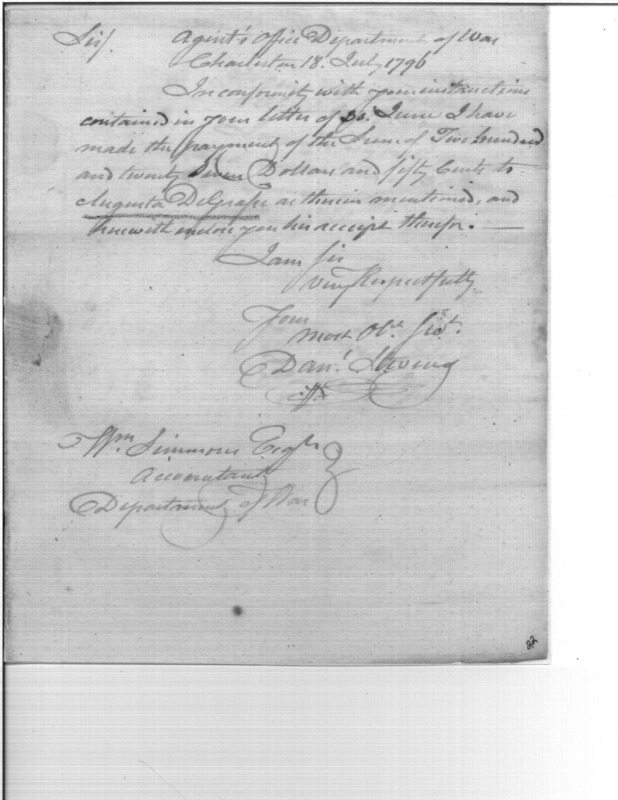 Sir/ Agent's Office Department of War
Charleston 18. July 1796
In conformity with your instructions
contained in your letter of 30. June I have
made the payment of the Sum of Two hundred
and twenty seven Dollars and fifty Cents to
Augusta DeGrasse as therein mentioned, and
herewith enclose you his receipt therefor. —
I am Sir
very Respectfully
Your
most Obt. Servt.
Danl. Stevens
Wm Simmons Esqr
Accountant
Department of War
22